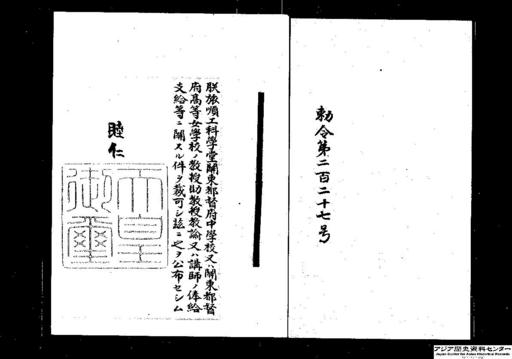 勅令第二百二十七号
朕旅順工科學堂關東都督府中學校又ハ關東都督
府高等女學校ノ教授助教授教諭又ハ講師ノ俸給
支給等ニ關スル件ヲ裁可シ茲ニ之ヲ公布セシム
睦仁
天皇
御璽
アジア歴史資料センター
Japan Center for Asian Historical Records